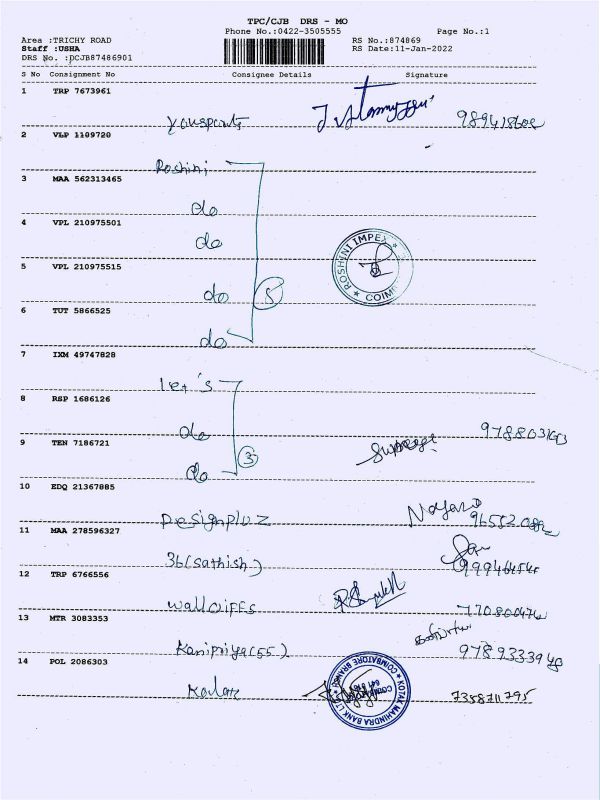 TPC/CJB DRS - MO
Phone No.:0422-3505555 Page No.:1
Area :TRICHY ROAD RS No.:874869
Staff :USHA RS Date:11-Jan-2022
DRS No. :DCJB87486901
S No Consignment No Consignee Details Signature
1 TRP 7673961
2 VLP 1109720
Roshini
3 MAA 562313465
do
4 VPL 210975501
do
5 VPL 210975515
do 5
6 TUT 5866525
do
7 IXM 49747828
8 RSP 1686126
do
9 TEN 7186721
do 3
10 EDQ 21367885
Designpluz
11 MAA 278596327
36(Sathish)
12 TRP 6766556
13 MTR 3083353
Kanipriya(55)
14 POL 2086303
7358711795
ROSHINI IMPEX
KOTAK MAHINDRA BANK LTD
COIMBATORE BRANCH